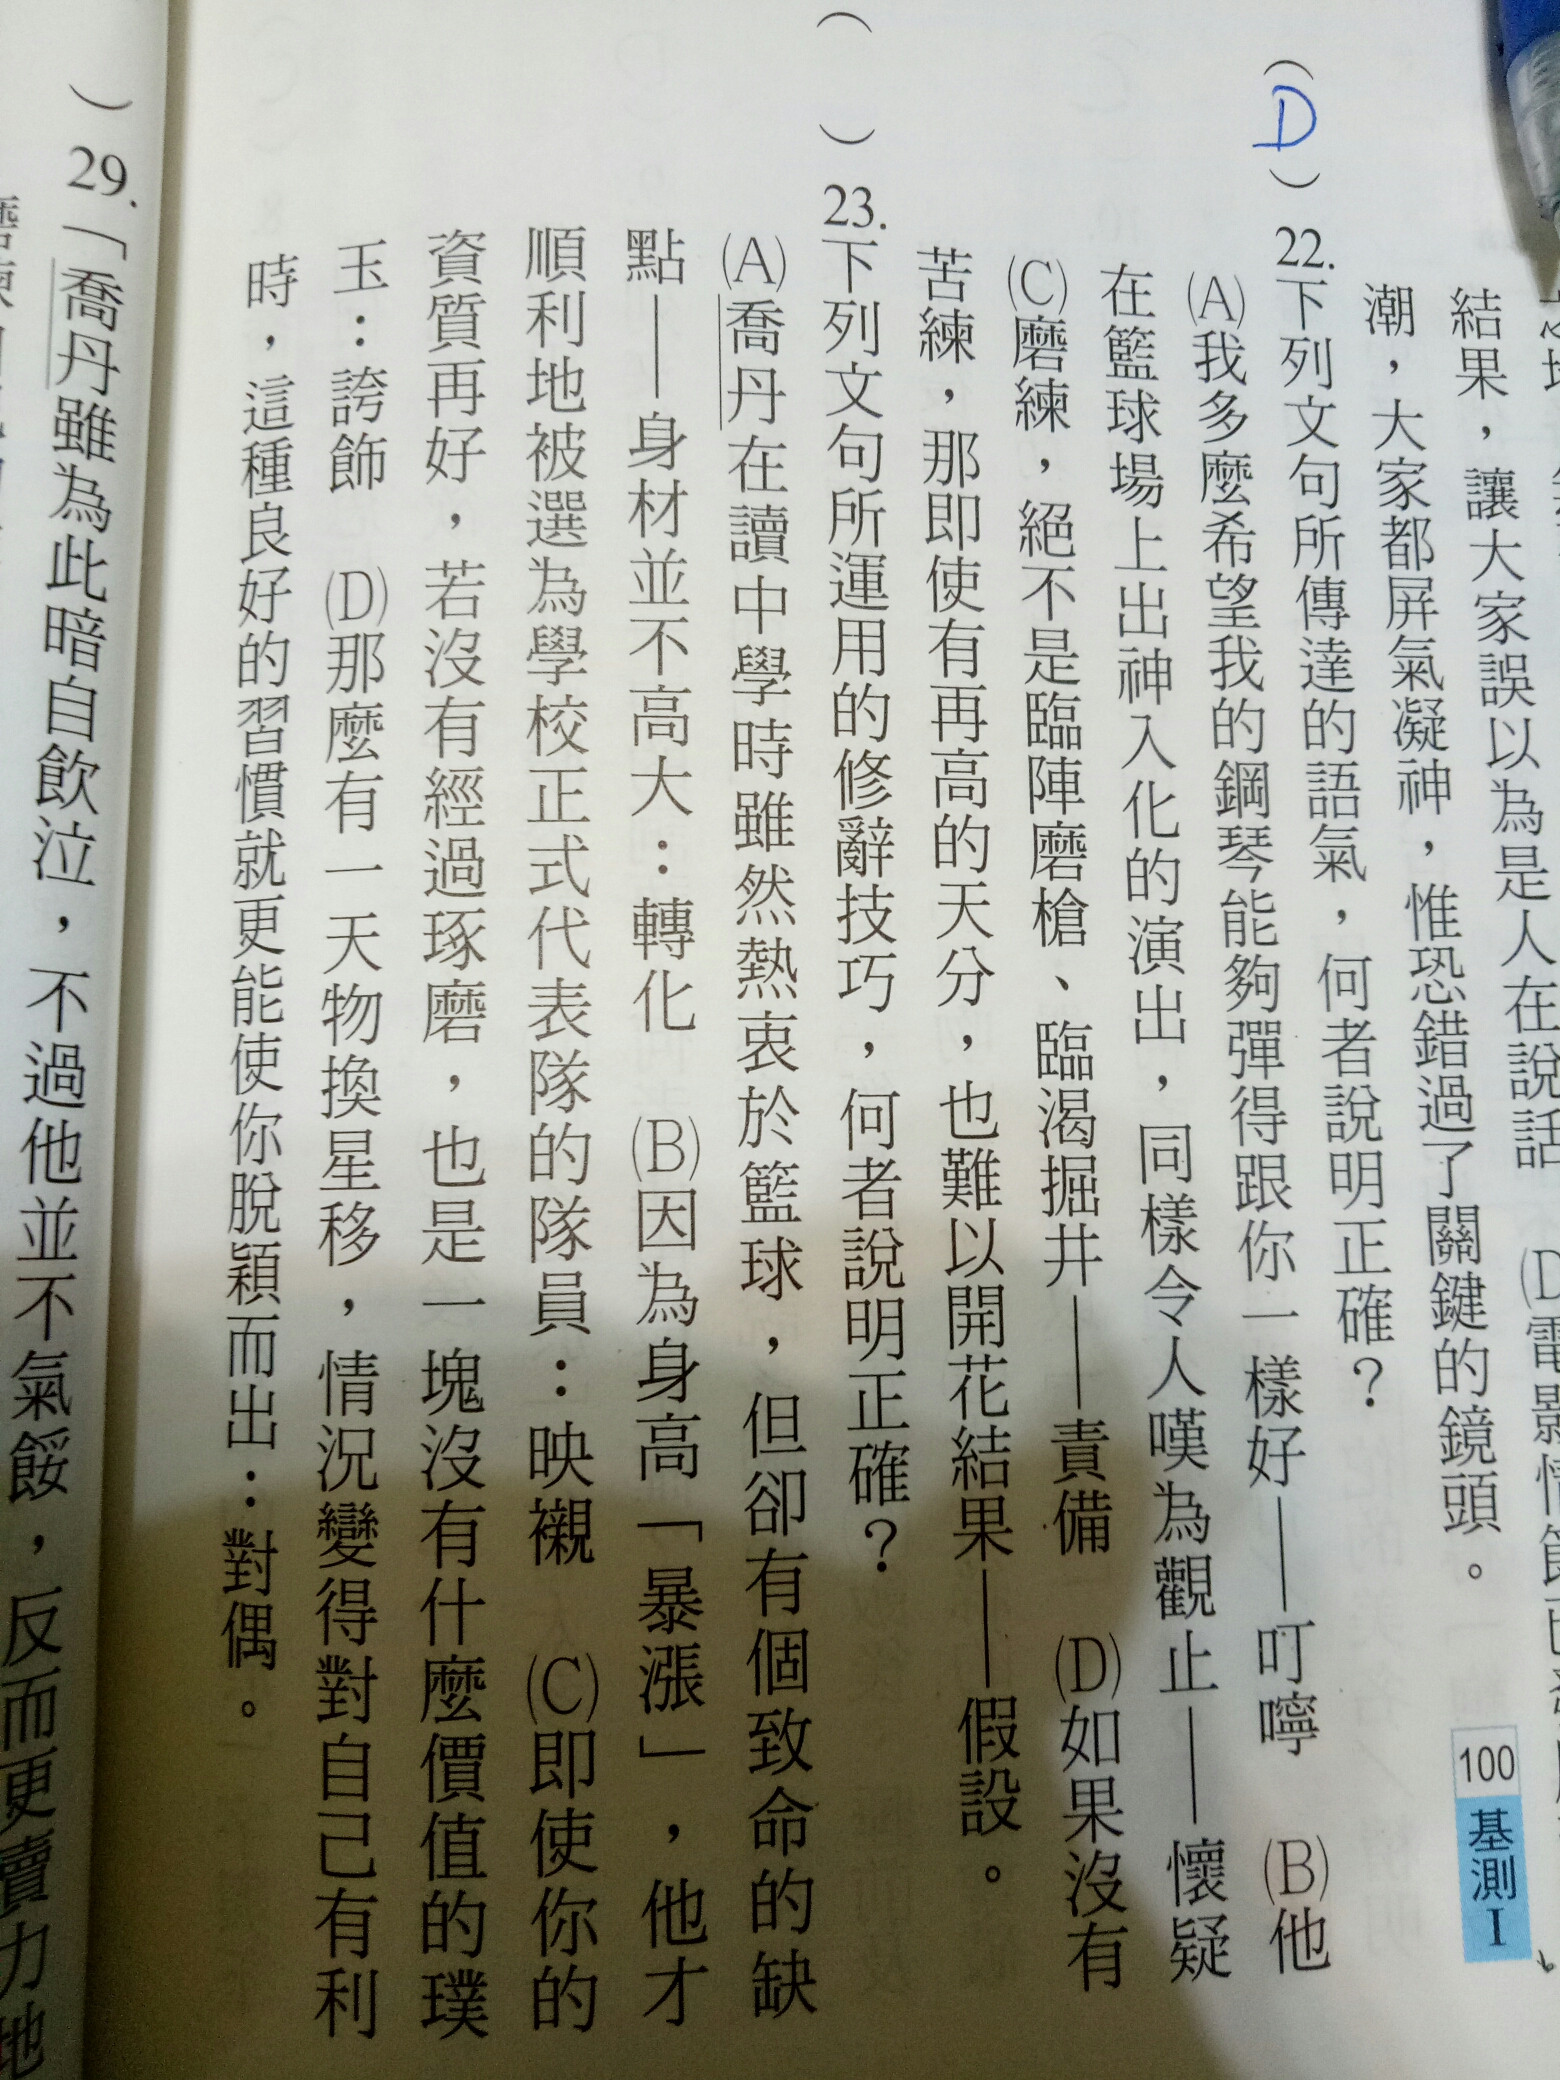 (D)電影情節已
結果，讓大家誤以為是人在說話
潮，大家都屏氣凝神，惟恐錯過了關鍵的鏡頭。
100基測I
(D)22.下列文句所傳達的語氣，何者說明正確？
(A)我多麼希望我的鋼琴能夠彈得跟你一樣好——叮嚀　(B)他
在籃球場上出神入化的演出，同樣令人嘆為觀止——懷疑
(C)磨練，絕不是臨陣磨槍、臨渴掘井——責備　(D)如果沒有
苦練，那即使有再高的天分，也難以開花結果——假設。
(　)23.下列文句所運用的修辭技巧，何者說明正確？
(A)喬丹在讀中學時雖然熱衷於籃球，但卻有個致命的缺
點——身材並不高大：轉化　(B)因為身高「暴漲」，他才
順利地被選為學校正式代表隊的隊員：映襯　(C)即使你的
資質再好，若沒有經過琢磨，也是一塊沒有什麼價值的璞
玉：誇飾　(D)那麼有一天物換星移，情況變得對自己有利
時，這種良好的習慣就更能使你脫穎而出：對偶。
)29.「喬丹雖為此暗自飲泣，不過他並不氣餒，反而更賣力地